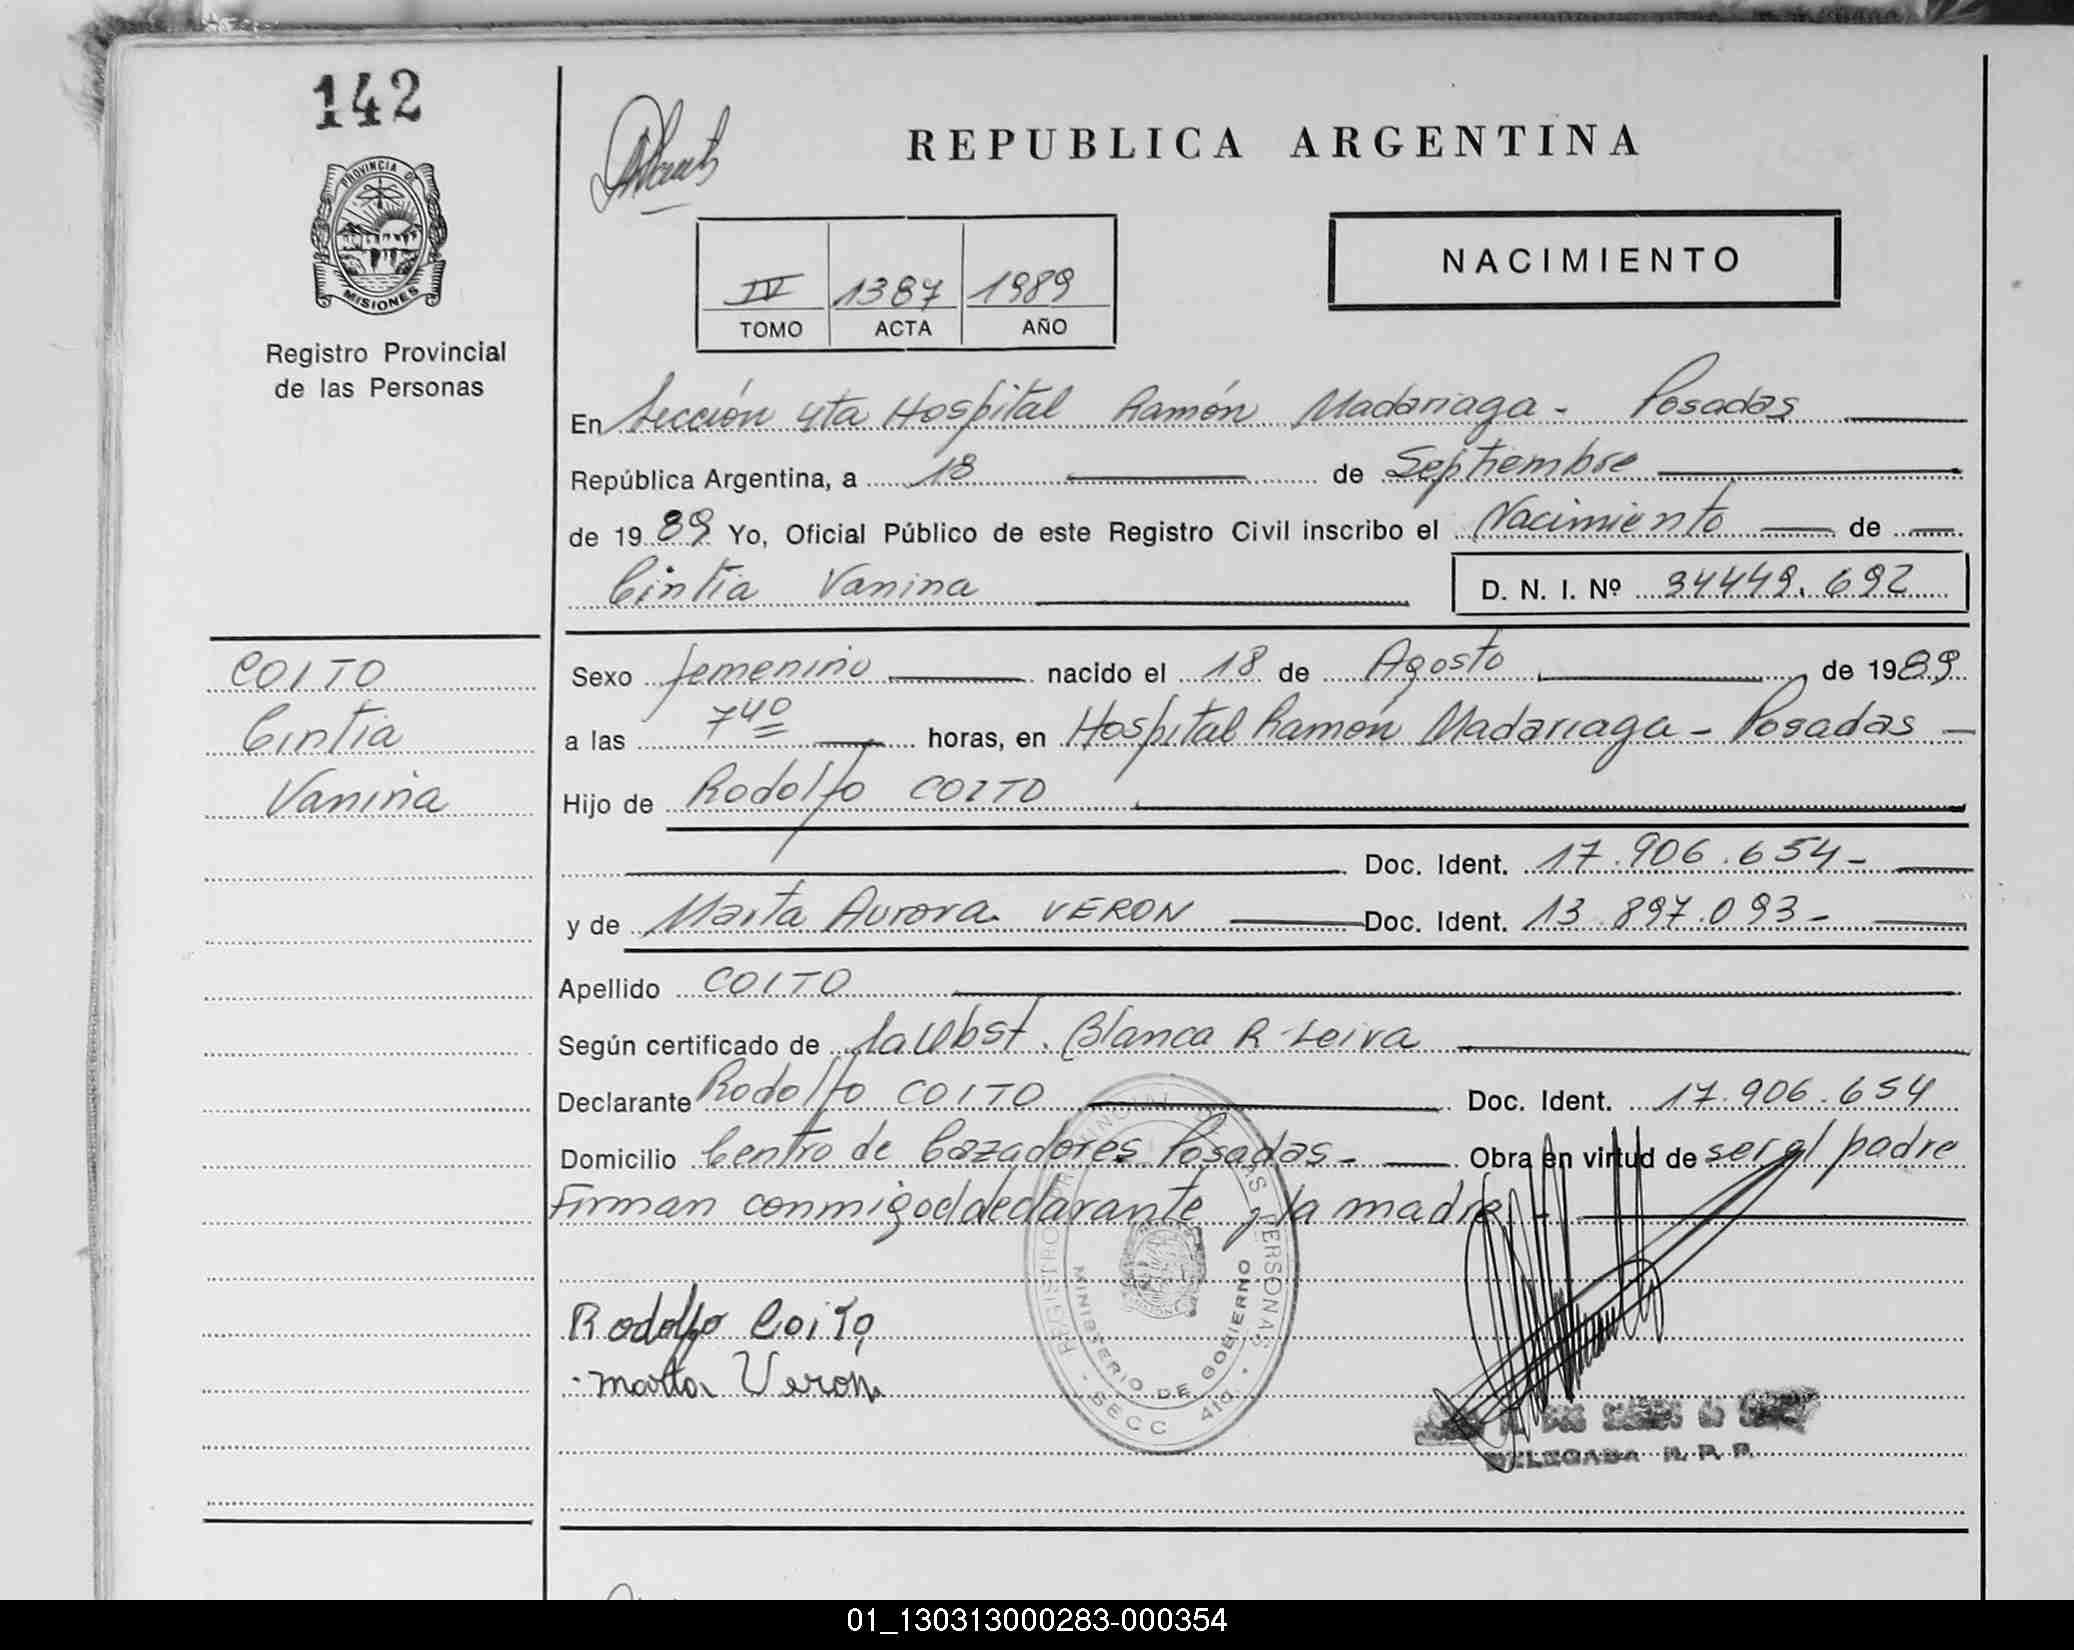 142
PROVINCIA DE
MISIONES
Registro Provincial
de las Personas
REPUBLICA ARGENTINA
NACIMIENTO
IV 1387 1989
TOMO ACTA AÑO
En Sección 4ta Hospital Ramón Madariaga - Posadas
República Argentina, a 18 de Septiembre
de 1989 Yo, Oficial Público de este Registro Civil inscribo el Nacimiento de
Cintia Vanina D. N. I. Nº 34449.692
COITO
Cintia
Vanina
Sexo femenino nacido el 18 de Agosto de 1989
a las 7 40 horas, en Hospital Ramón Madariaga - Posadas -
Hijo de Rodolfo COITO
Doc. Ident. 17.906.654-
y de Marta Aurora VERON Doc. Ident. 13.897.093-
Apellido COITO
Según certificado de la Obst. Blanca R. Leiva
Declarante Rodolfo COITO Doc. Ident. 17.906.654
Domicilio Centro de Cazadores Posadas - Obra en virtud de ser el padre
Firman conmigo el declarante y la madre -
Rodolfo Coito
Marta Veron
REGISTRO PROVINCIAL DE LAS PERSONAS
MINISTERIO DE GOBIERNO
SECC 4ta.
DELEGADA R. P. P.
01_130313000283-000354